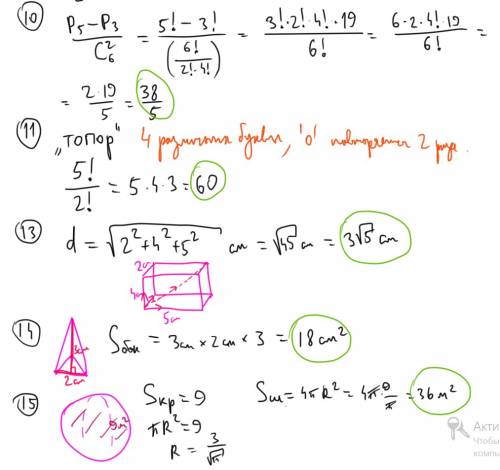 10 (P₅ − P₃) / C₆² = (5! − 3!) / (6! / (2!·4!)) = (3!·2!·4!·19) / 6! = (6·2·4!·19) / 6! =
= (2·19) / 5 = 38/5
11 „ТОПОР" 4 различных буквы, 'о' повторяется 2 раза.
5! / 2! = 5·4·3 = 60
13 d = √(2²+4²+5²) см = √45 см = 3√5 см
2см
4см
5см
14 Sбок = 3см × 2см × 3 = 18 см²
3см
2см
15 Sкр = 9 Sш = 4πR² = 4π·9/π = 36 м²
9м²
πR² = 9
R = 3/√π
Акти
Чтобы
компь